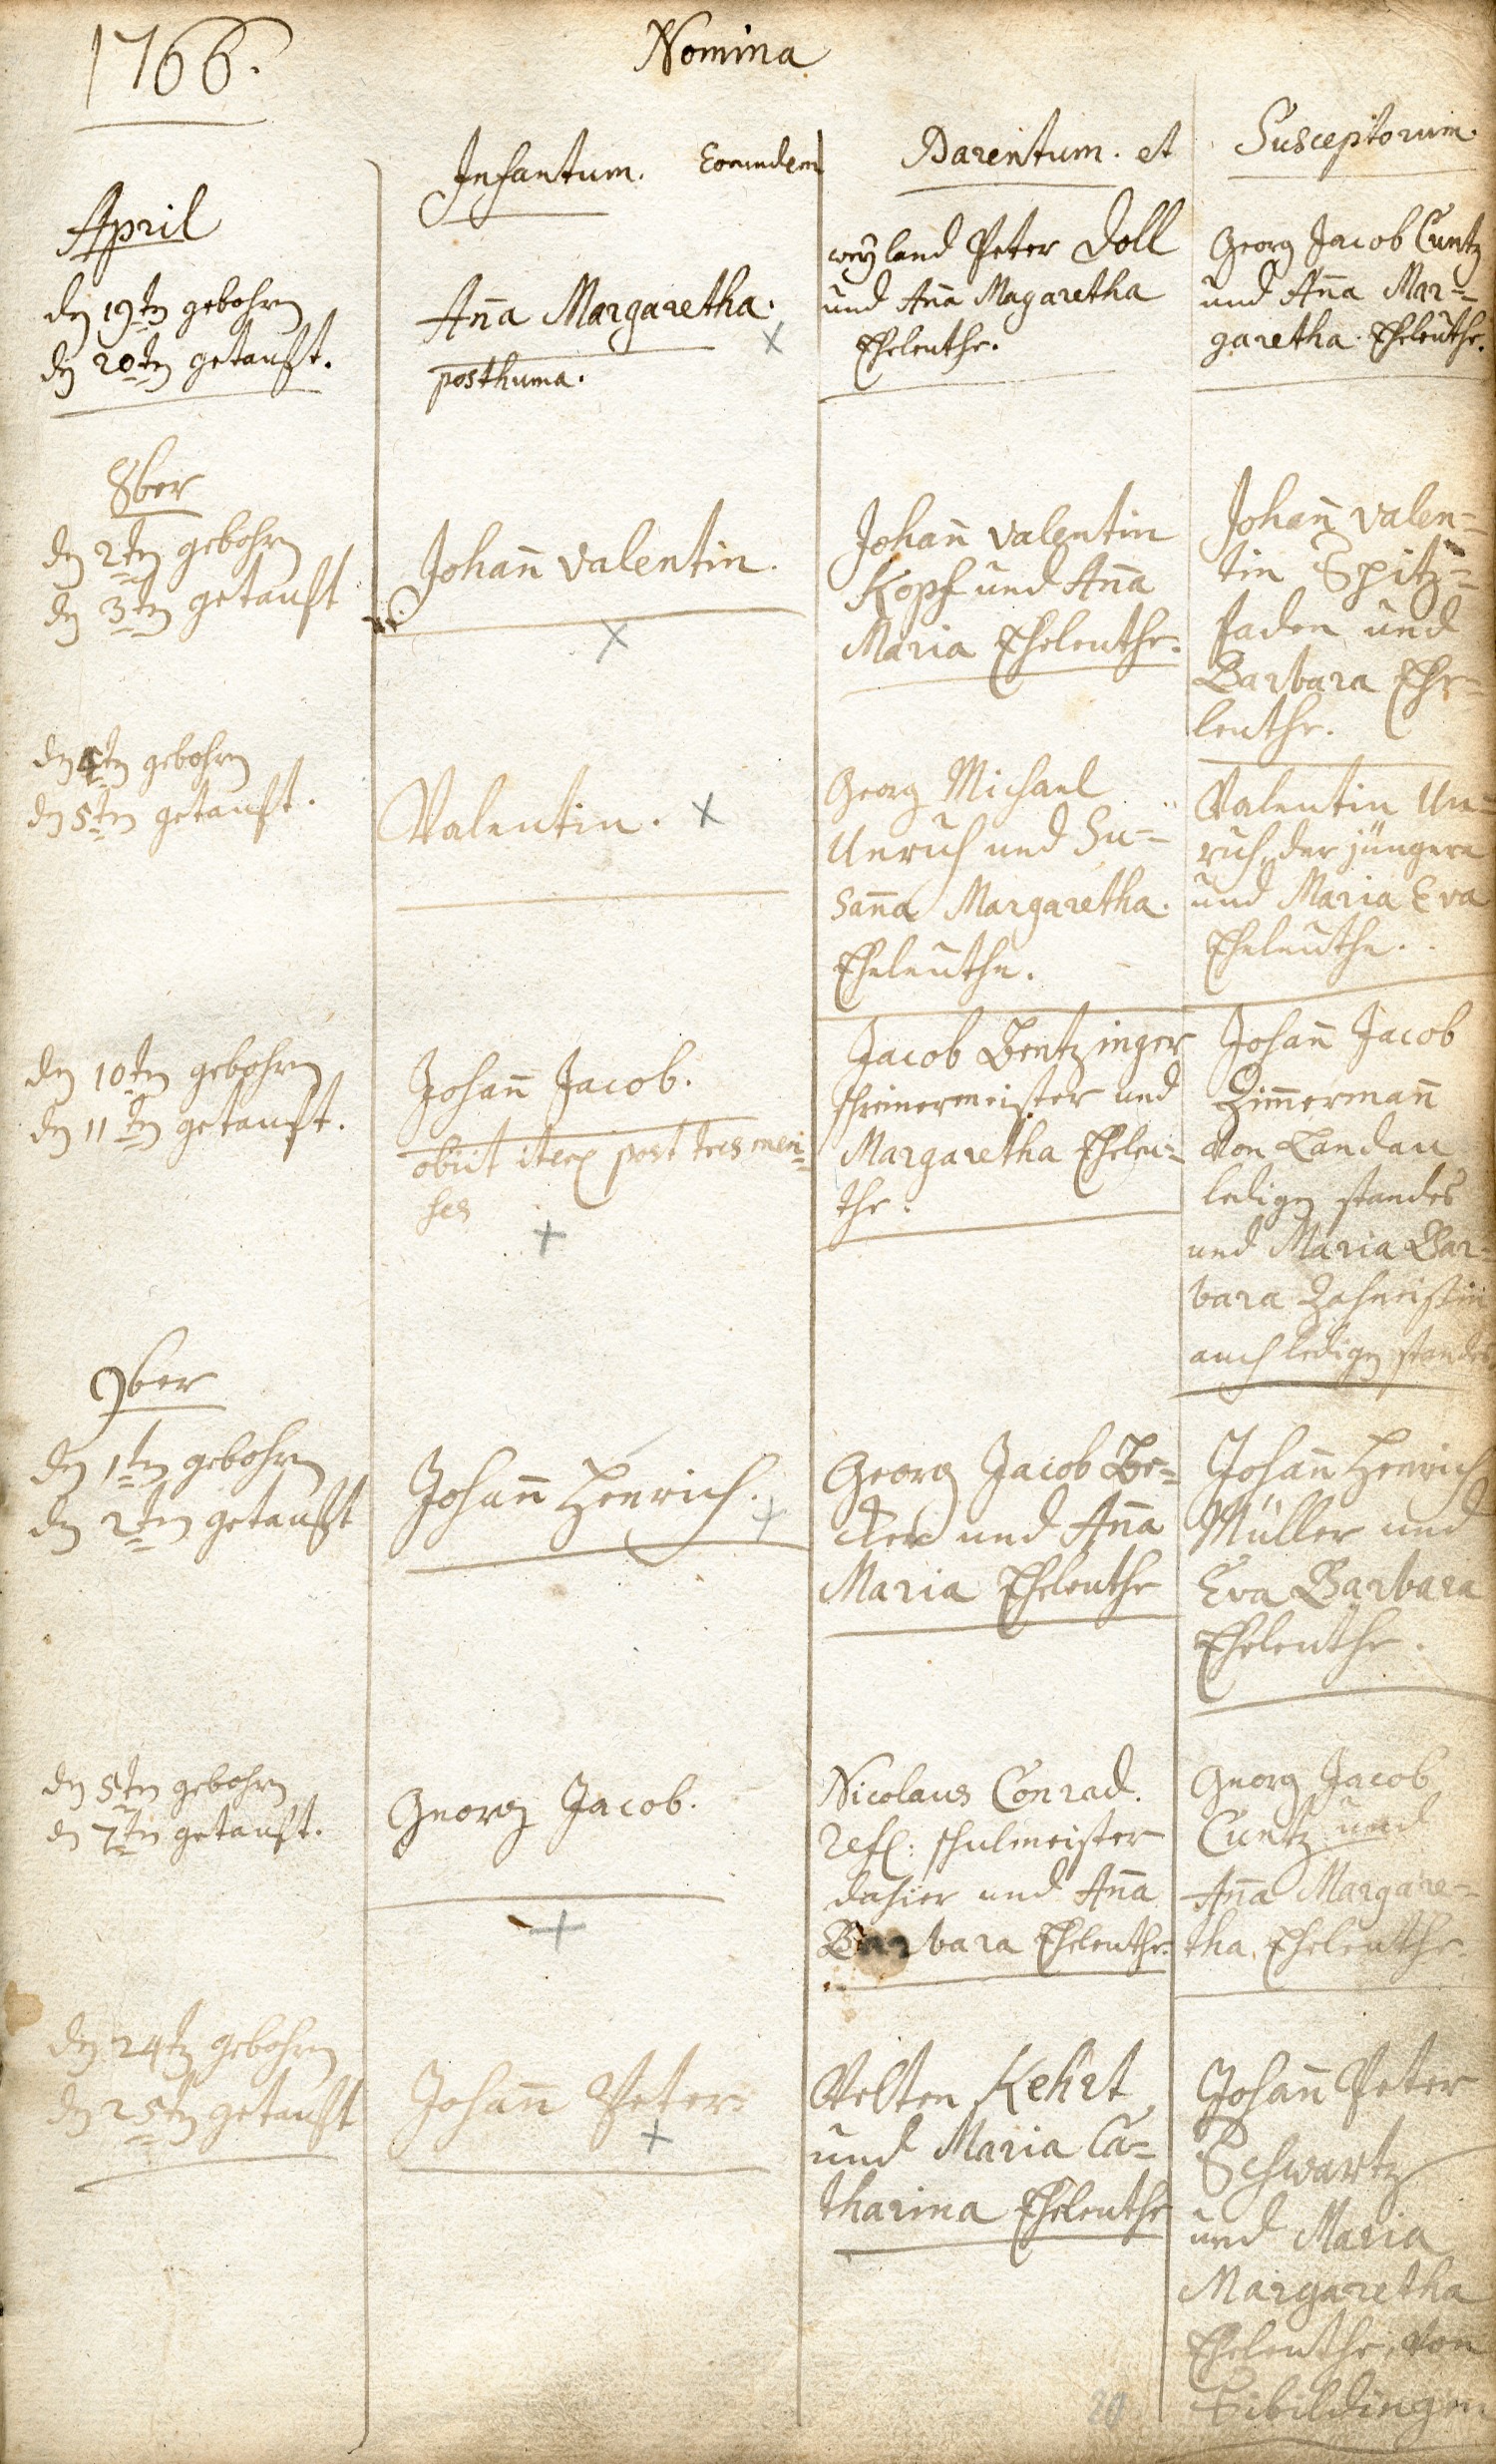 1766.
Nomina
Infantum. Eorundem
Parentum. et
Susceptorum.
April
den 19ten gebohren
den 20ten getauft.
Anna Margaretha.
posthuma.
weyland Peter Doll
und Anna Magaretha
Eheleuthe.
Georg Jacob Cuntz
und Anna Mar=
garetha Eheleuthe.
8ber
den 2ten gebohren
den 3ten getauft
Johann Valentin.
Johann Valentin
Kopf und Anna
Maria Eheleuthe.
Johann Valen=
tin Spitz=
faden und
Barbara Ehe=
leuthe.
den 4ten gebohren
den 5ten getauft.
Valentin.
Georg Michael
Unruh und Su=
sanna Margaretha.
Eheleuthe.
Valentin Un=
ruh, der jüngere
und Maria Eva
Eheleuthe.
den 10ten gebohren
den 11ten getauft.
Johann Jacob.
obiit post tres men=
ses
Jacob Bentzinger
schreinermeister und
Margaretha Eheleu=
the.
Johann Jacob
Zimmermann
von Landau
ledigen standes
und Maria Bar=
bara
auch ledigen standes
9ber
den 1ten gebohren
den 2ten getauft
Johann Henrich.
Georg Jacob Be=
cker und Anna
Maria Eheleuthe
Johann Henrich
Müller und
Eva Barbara
Eheleuthe.
den 5ten gebohren
den 7ten getauft.
Georg Jacob.
Nicolaus Conrad.
ref: schulmeister
dahier und Anna
Barbara Eheleuthe.
Georg Jacob
Cuntz und
Anna Margare=
tha. Eheleuthe.
den 24ten gebohren
den 25ten getauft
Johann Peter.
Velten Kehrt
und Maria Ca=
tharina Eheleuthe
Johann Peter
Schwartz
und Maria
Margaretha
Eheleuthe, von
20